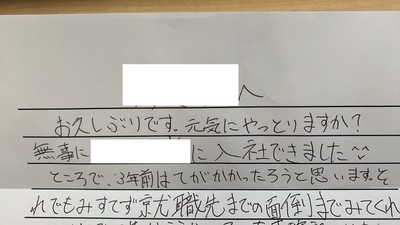 へ
お久しぶりです。元気にやっとりますか?
無事に に入社できました
ところで、3年前はてがかかったろうと思います。そ
れでもみすてず就職先までの面倒までみてくれ